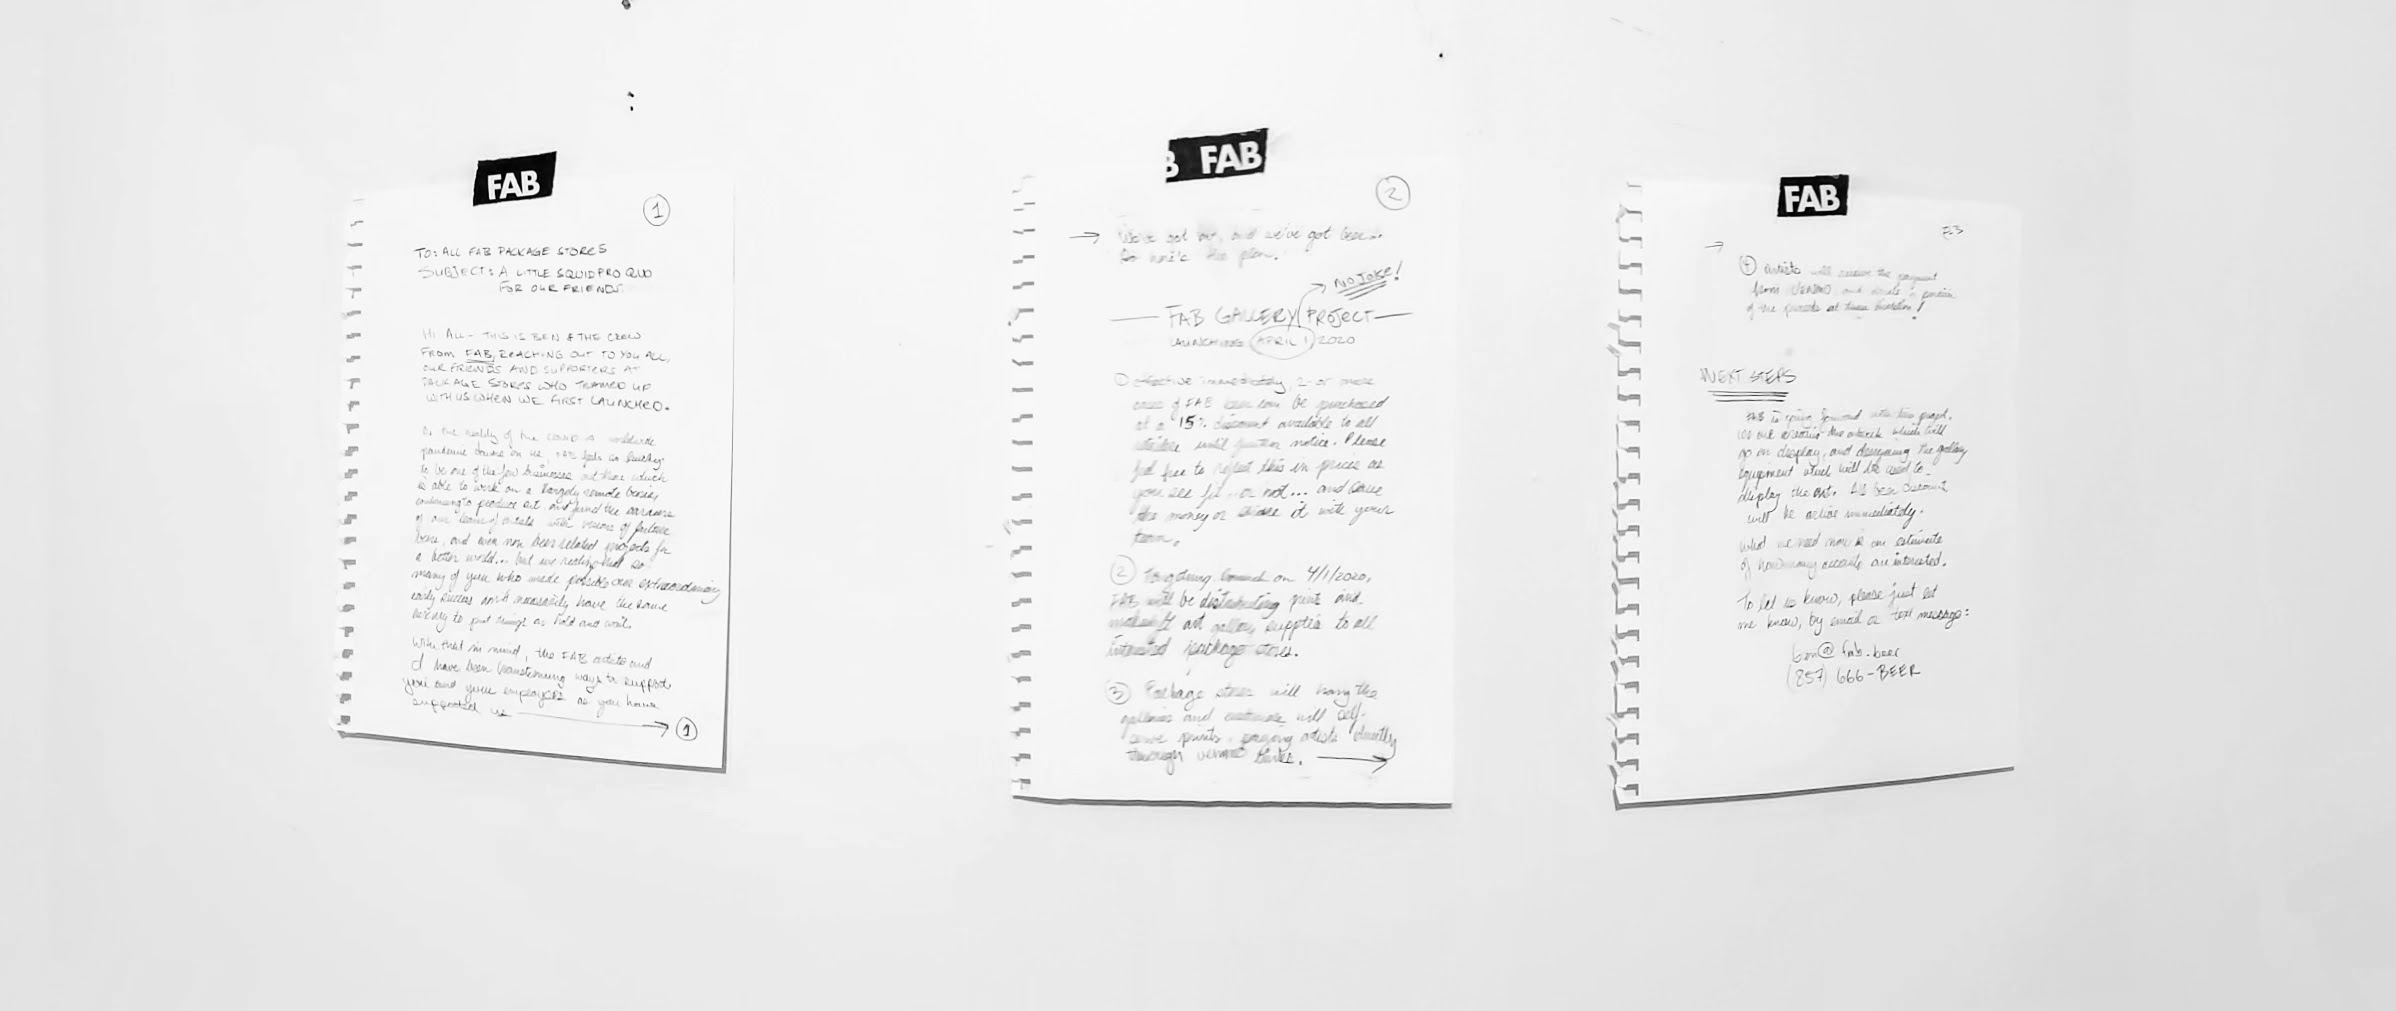 FAB
1
TO: ALL FAB PACKAGE STORES
SUBJECT: A LITTLE SQUID PRO QUO
FOR OUR FRIENDS.
HI ALL - THIS IS BEN & THE CREW
FROM FAB, REACHING OUT TO YOU ALL,
OUR FRIENDS AND SUPPORTERS AT
PACKAGE STORES WHO TEAMED UP
WITH US WHEN WE FIRST LAUNCHED.
As the reality of the worldwide
pandemic on us, FAB feels so lucky
to be one of the few businesses out there which
is able to work on a largely remote basis,
continuing to produce art, and fund the
of our team of artists with visions of future
beers, and even non beer related projects for
a better world... but we realize that so
many of you who made possible our extraordinary
early success don't necessarily have the same
luxury to put things on hold and wait.
With that in mind, the FAB artists and
I have been brainstorming ways to support
you and your employees as you have
supported us → 1
B FAB
2
→ We've got art, and we've got beer...
So here's the plan.
NO JOKE!
FAB GALLERY PROJECT
LAUNCHING APRIL 1 2020
1 effective immediately, 2 or more
cases of FAB beer can be purchased
at a 15% discount available to all
until further notice. Please
feel free to reflect this in prices as
you see fit... or not... and save
the money or share it with your
team.
2 Targeting launch on 4/1/2020,
FAB will be distributing prints and
makeshift art gallery supplies to all
interested package stores.
3 Package stores will hang the
galleries and customers will self-
serve prints, paying artists directly
through venmo links. →
FAB
→
4 Artists will receive the payment
from VENMO and donate a portion
of the proceeds at their discretion!
NEXT STEPS
FAB is going forward with this project.
We are creating the artwork which will
go on display, and designing the gallery
equipment which will be used to
display the art. All beer discount
will be active immediately.
What we need now is an estimate
of how many accounts are interested.
To let us know, please just let
me know, by email or text message:
ben@fab.beer
(857) 666-BEER